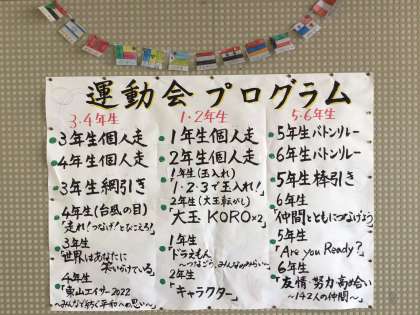 運動会 プログラム
3・4年生
3年生個人走
4年生個人走
3年生綱引き
4年生(台風の目)
「走れ!つなげ!とびこえろ!」
3年生
「世界はあなたに
笑いかけている」
4年生
「東山エイサー2022
～みんなで紡ぐ平和への思い～」
1・2年生
1年生個人走
2年生個人走
1年生(玉入れ)
「1・2・3で玉入れ!」
2年生(大玉転がし)
「大玉 KORO×2」
1年生
「ドラえもん
～つなごう、みんなのみらい～」
2年生
「キャラクター」
5・6年生
5年生バトンリレー
6年生バトンリレー
5年生棒引き
6年生
「仲間とともにつなげよう」
5年生
「Are you Ready?」
6年生
「友情・努力・高め合い
～142人の仲間～」